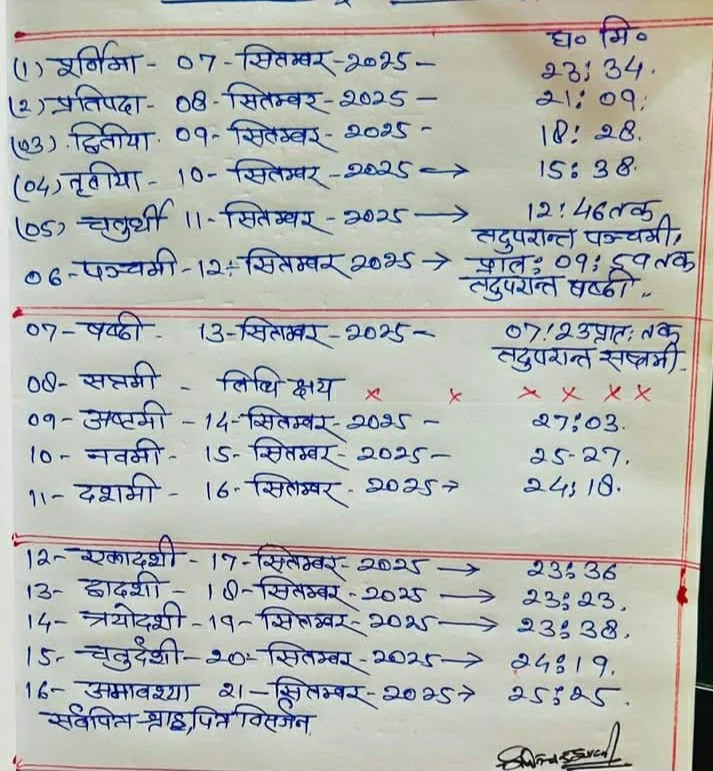 घ० मि०
(1) पूर्णिमा - 07 - सितम्बर - 2025 - 23:34.
(2) प्रतिपदा - 08 - सितम्बर - 2025 - 21:09:
(03). द्वितीया. 09 - सितम्बर - 2025 - 18:28.
(04) तृतीया - 10 - सितम्बर - 2025 → 15:38.
(05) चतुर्थी 11 - सितम्बर - 2025 → 12:46 तक
तदुपरान्त पञ्चमी,
06 - पञ्चमी - 12 - सितम्बर 2025 → प्रातः 09:59 तक
तदुपरान्त षष्ठी..
07 - षष्ठी. 13 - सितम्बर - 2025 - 07:23 प्रातः तक
तदुपरान्त सप्तमी.
08 - सप्तमी - तिथि क्षय x x x x x x
09 - अष्टमी - 14 - सितम्बर - 2025 - 27:03.
10 - नवमी - 15 - सितम्बर - 2025 - 25-27.
11 - दशमी - 16 - सितम्बर - 2025 → 24:18.
12 - एकादशी - 17 - सितम्बर - 2025 → 23:36
13 - द्वादशी - 18 - सितम्बर - 2025 → 23:23.
14 - त्रयोदशी - 19 - सितम्बर - 2025 → 23:38.
15 - चतुर्दशी - 20 - सितम्बर - 2025 → 24:19.
16 - अमावश्या 21 - सितम्बर - 2025 → 25:25.
सर्वपितृ श्राद्ध, पितृ विसर्जन